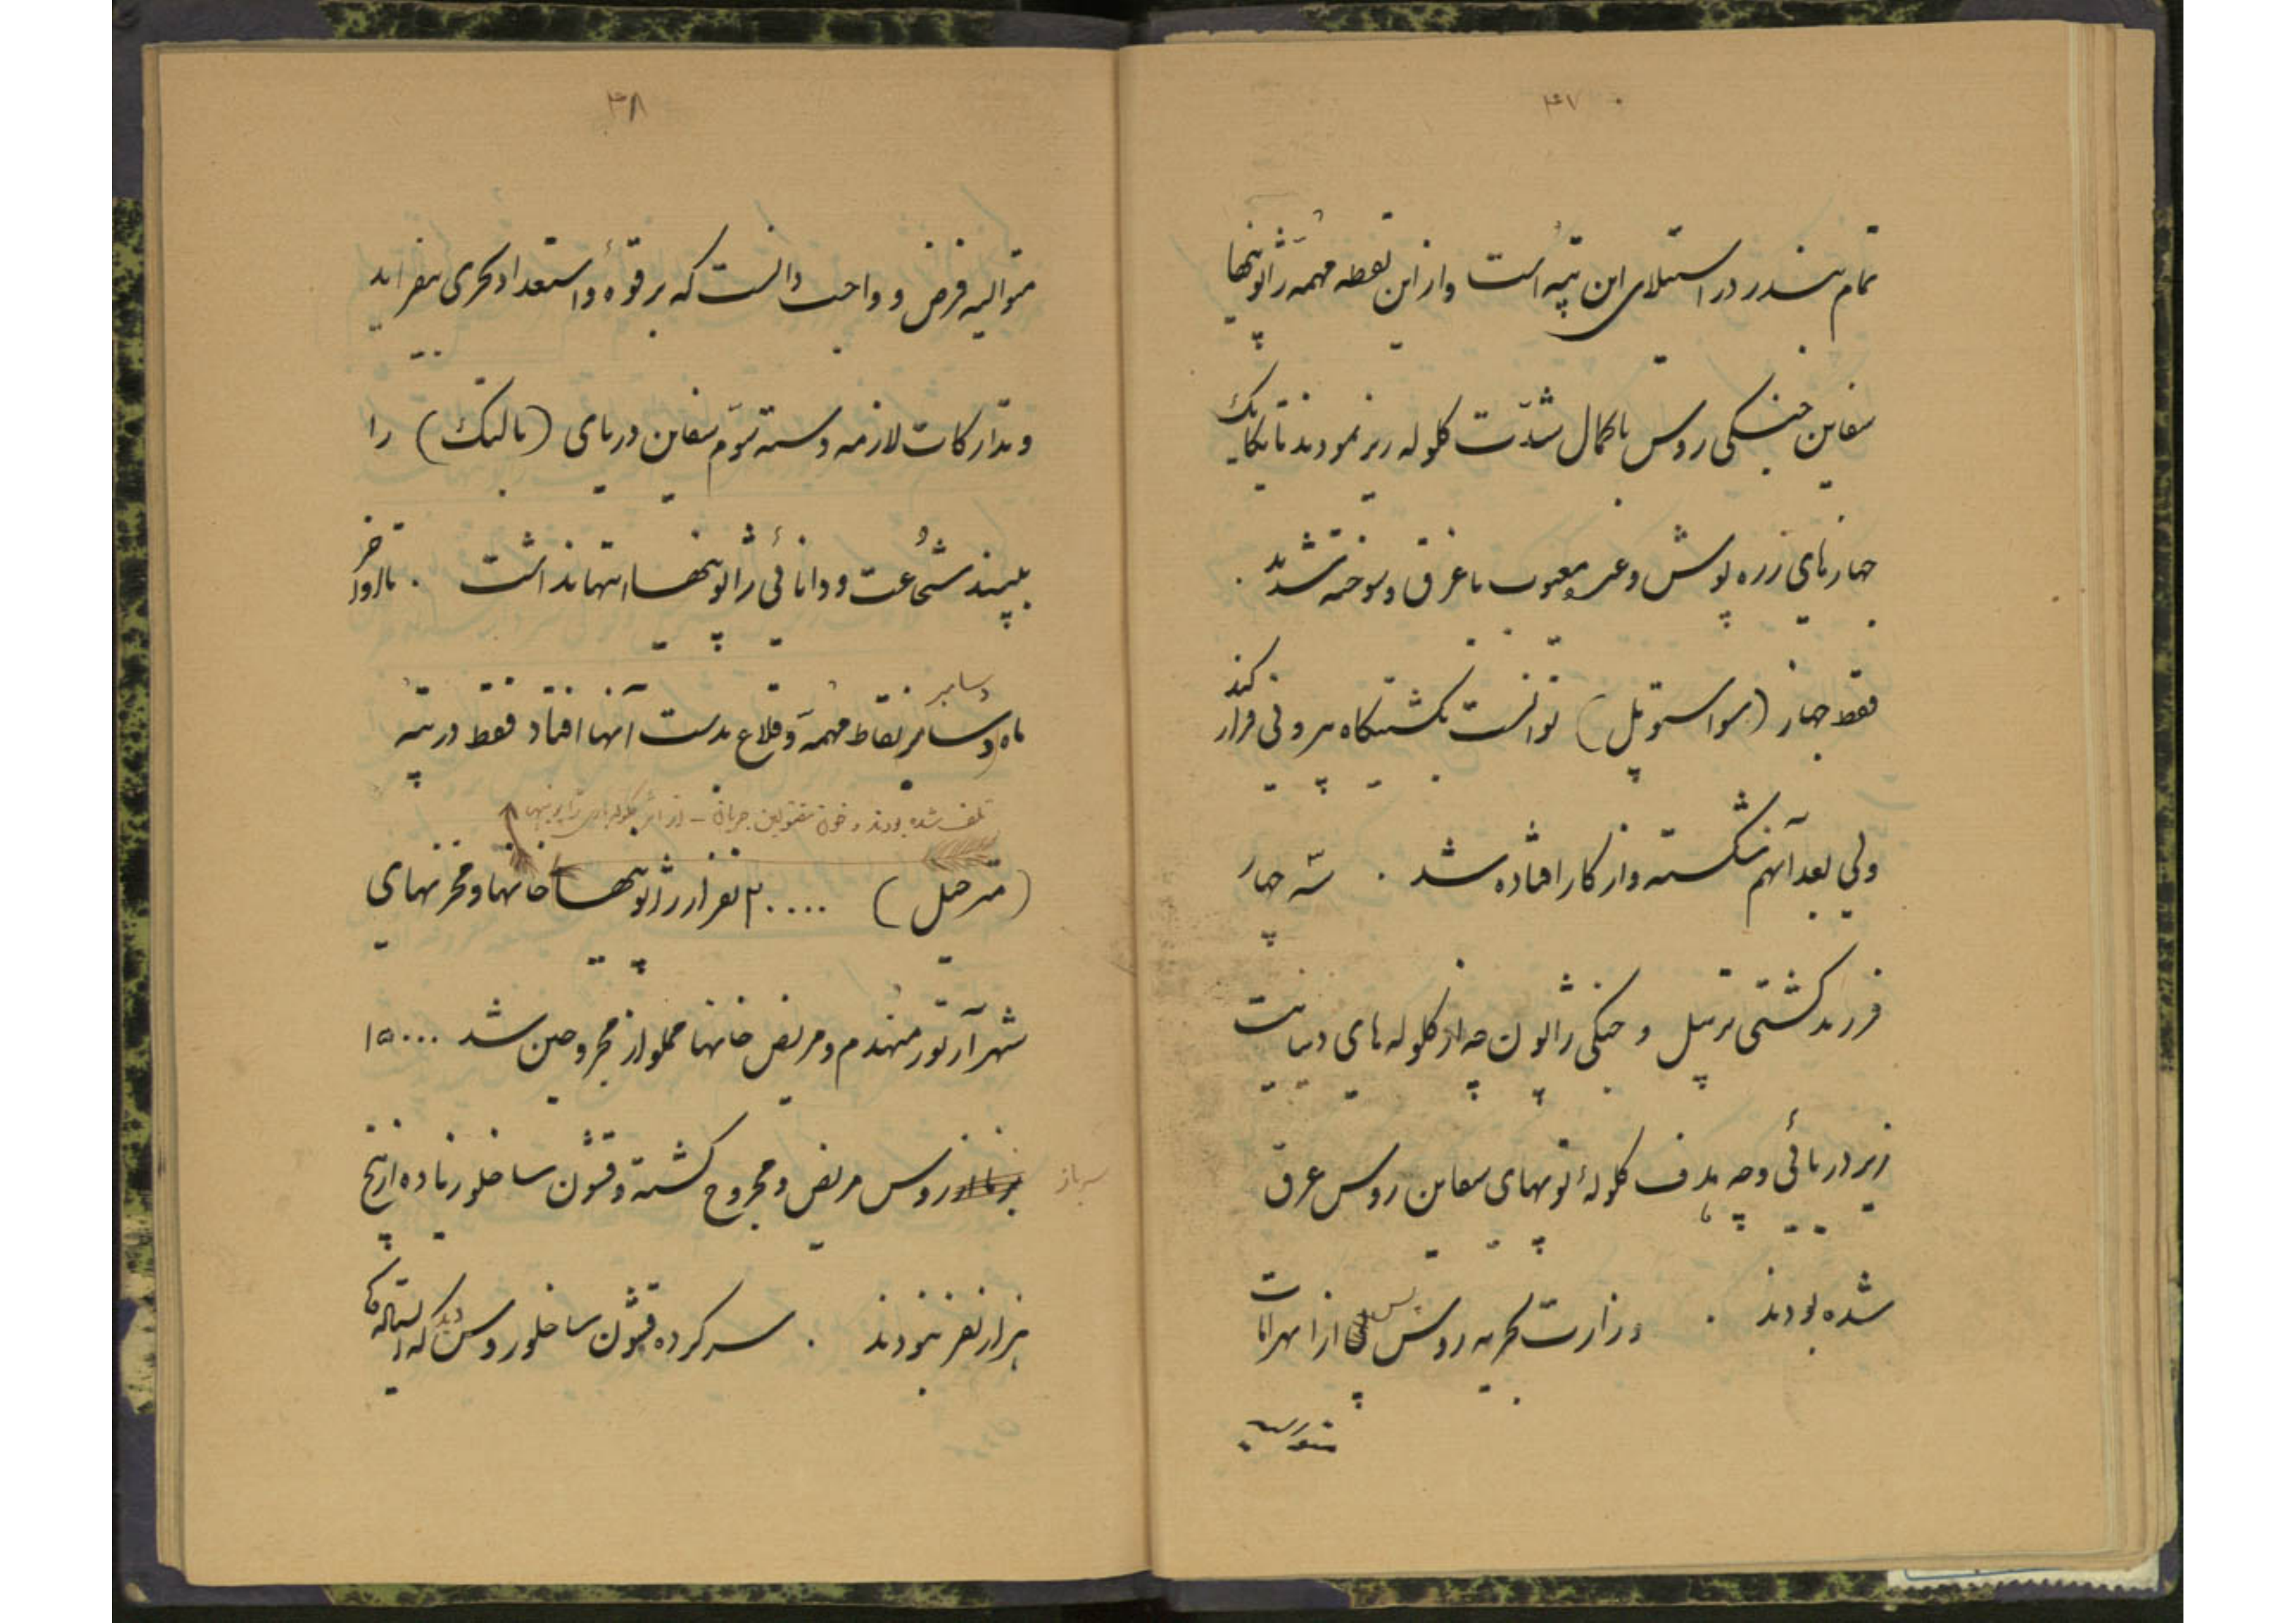 ۴۷
تمام بندر در استیلای این تپه است و از این نقطه مهمه ژاپونیها
سفاین جنگی روس با کمال شدّت گلوله ریز نمودند تا یکایک
جهازهای زره پوش و غیره معیوب یا غرق و سوخته شدند .
فقط جهاز (سواستوپل) توانست بکشتیگاه بیرونی فرار کند
ولی بعد آنهم شکسته و از کار افتاده شد . سه چهار
فروند کشتی ترپیل و جنگی ژاپون چه از گلوله های دینامیت
زیر دریائی و چه بهدف گلولهٔ توپهای سفاین روس غرق
شده بودند . وزارت بحریه روس پس از انهزامات
متوالیه
۴۸
متوالیه فرض و واجب دانست که بر قوه و استعداد بحری بیفزاید
و تدارکات لازمه دسته سوّم سفاین دریای (بالتیک) را
ببیند شجاعت و دانائی ژاپونیها انتها نداشت . تا اواخر
ماه دسامبر نقاط مهمّه و قلاع بدست آنها افتاد فقط در تپه
دسامبر
تلف شده بودند و خون مقتولین جریان - از اثر گلوله های ژاپونیها
(مترحیل) ۲۰۰۰۰ نفر از ژاپونیها خانها و مخزنهای
شهر آرتور منهدم و مریض خانها مملو از مجروحین شد ۱۵۰۰۰
سرباز روس مریض و مجروح گشته و قشون ساخلو زیاده از پنج
هزار نفر نبودند . سر کرده قشون ساخلو روس دید که